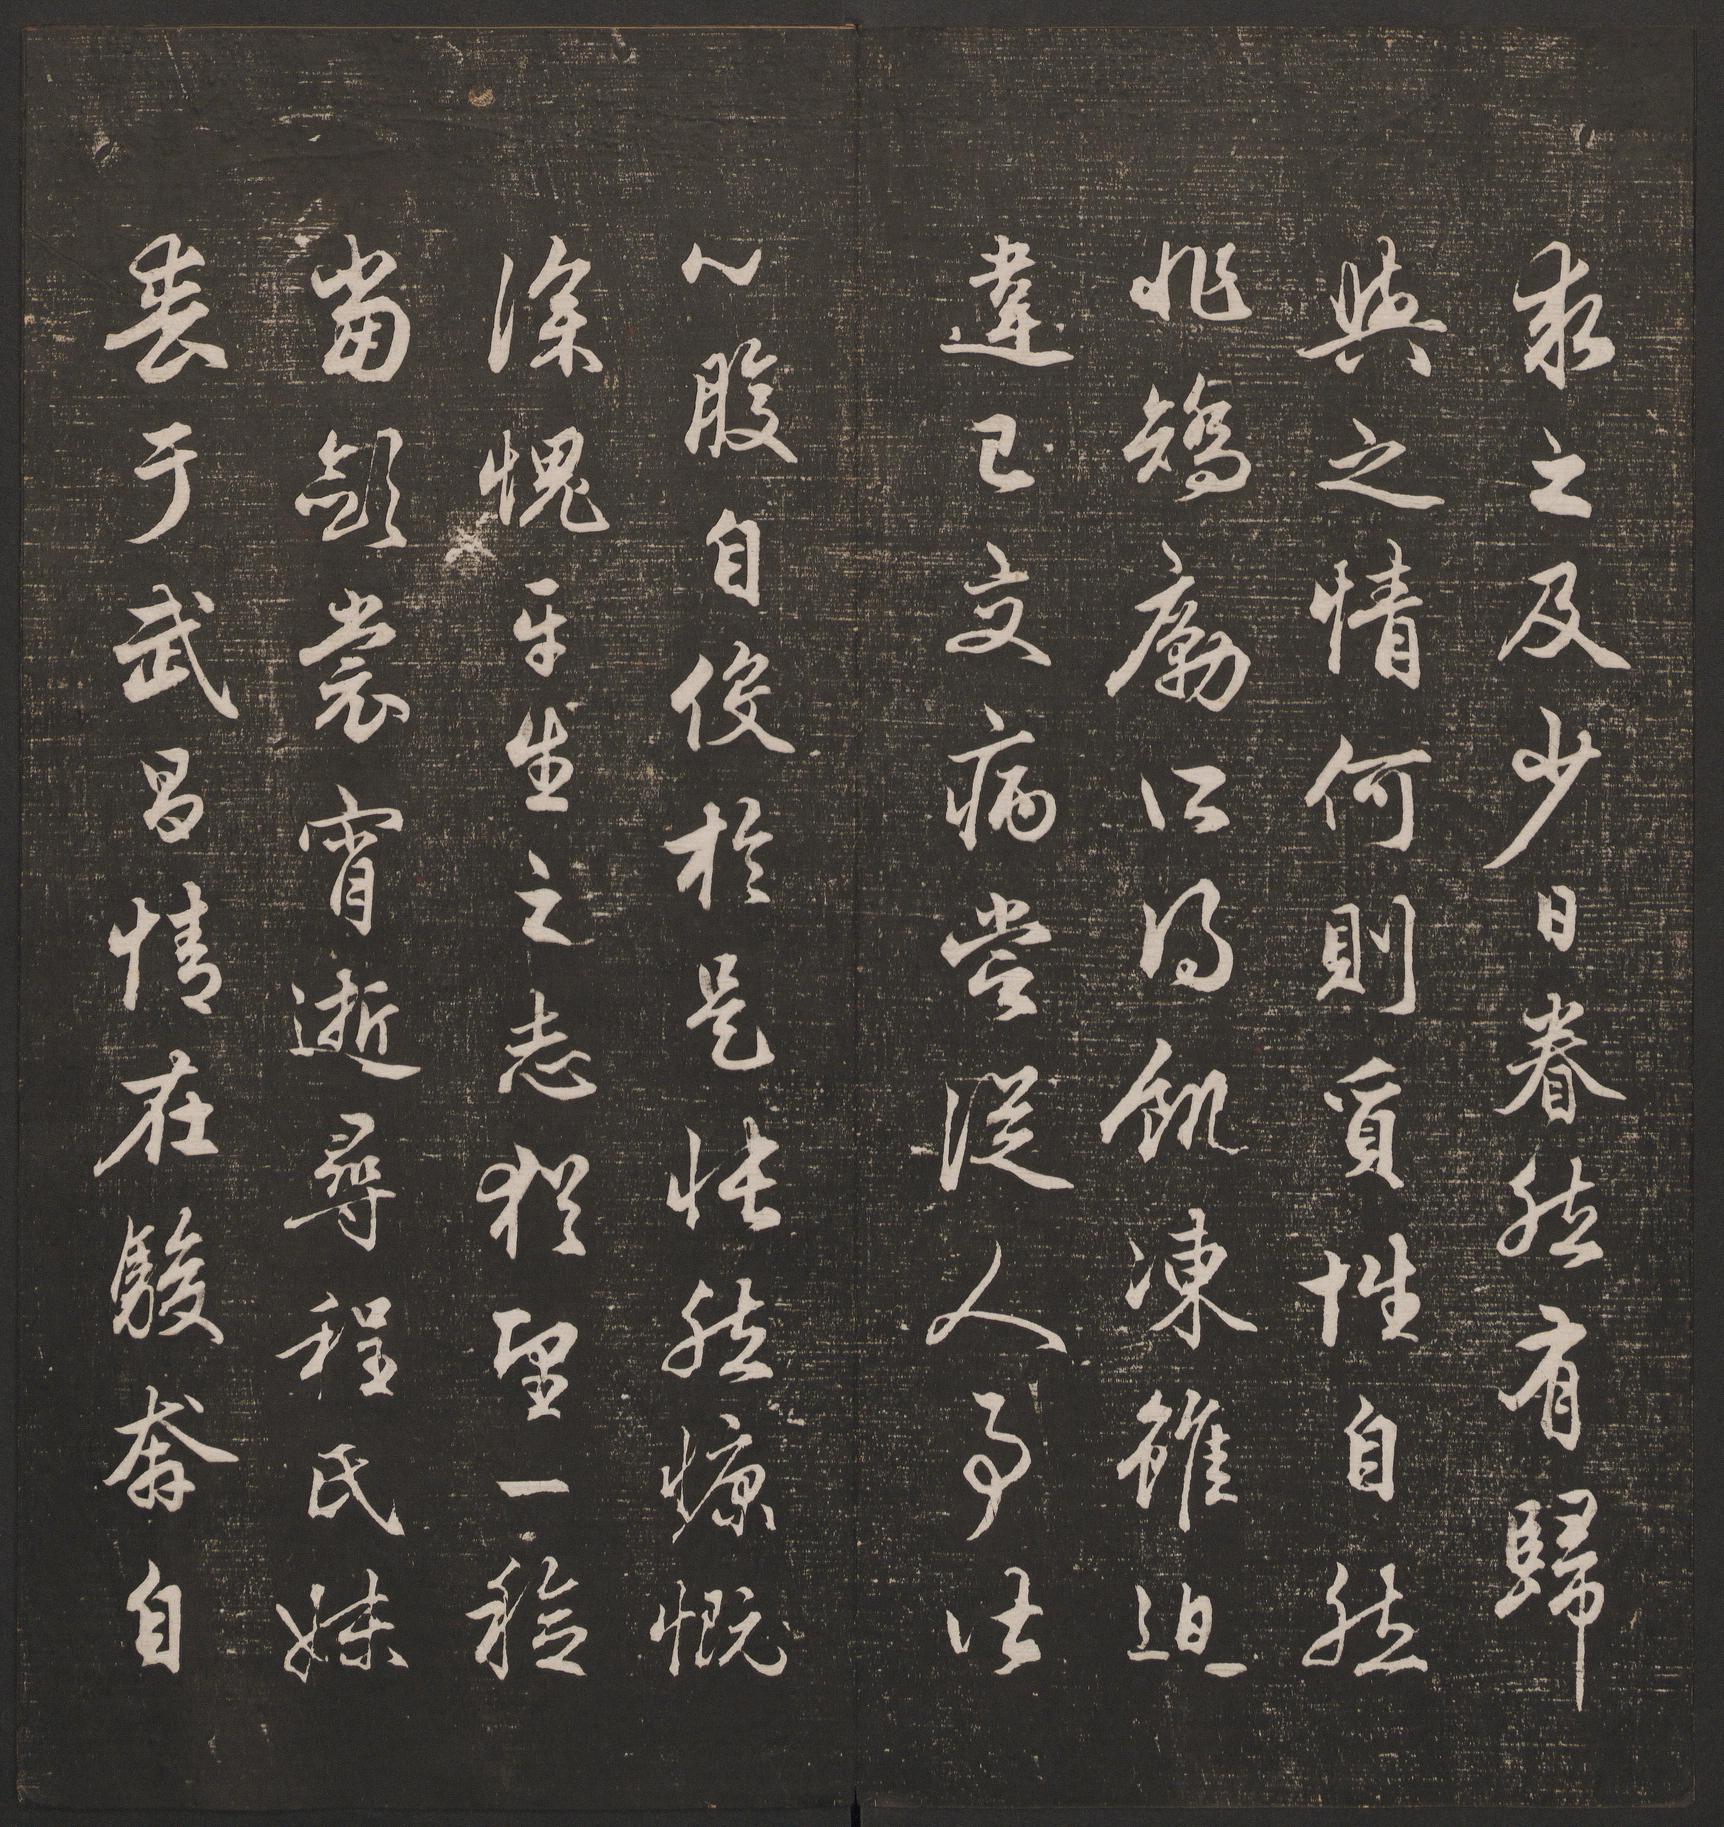 求之及少日眷然有歸
與之情何則質性自然
非矯勵所得飢凍雖迫
違己交病嘗從人事皆
口腹自役於是悵然慷慨
深愧平生之志猶望一稔
當斂裳宵逝尋程氏妹
喪于武昌情在駿奔自